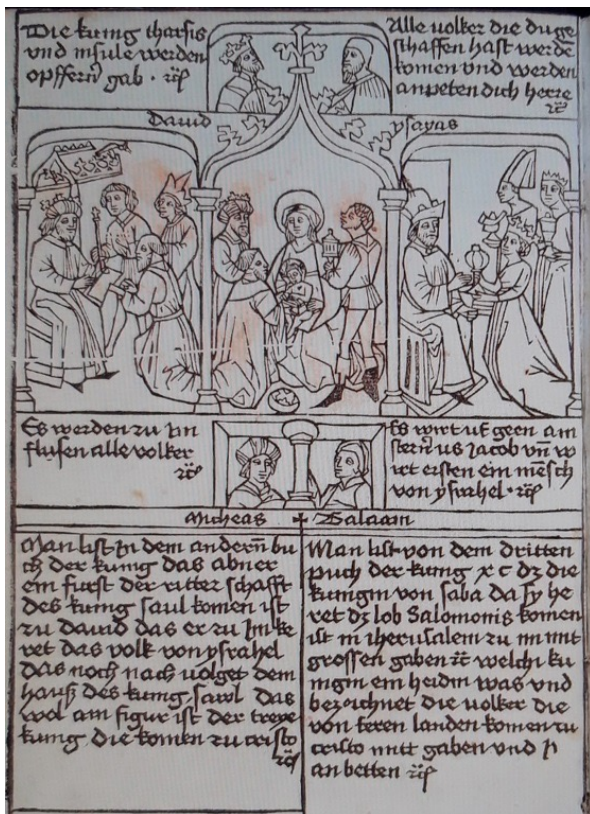 Die kunig tharsis
vnd insule werden
opffern̄ gab · rc̄
Alle volker die du ge
schaffen hast werde
komen vnd werden
anpeten dich herre
rc̄
Dauid
ysayas
Es werden zu im
flusen alle volker
rc̄
Es wirt uf geen ain
stern̄ us Jacob vn̄ w
irt ersten ein mēsch
von ysrahel · rc̄
Micheas + Balaam
Man list in dem andern̄ bu
ch der kunig das abner
ein furst der ritter schafft
des kunig saul komen ist
zu dauid das er zu im ke
ret das volk von ysrahel
das noch nach volget dem
hauß des kunig sawl das
wol ain figur ist der treye
kunig die komen zu cristo
rc̄
Man list von dem dritten
puch der kunig x c dz die
kunigin von saba da sy he
ret dz lob Salomonis komen
ist in iherusalem zu im mit
grossen gaben rc̄ welchi ku
nigin ein heidin was vnd
bezoichnet die volker die
von feren landen komen zu
cristo mitt gaben vnd in
an betten rc̄